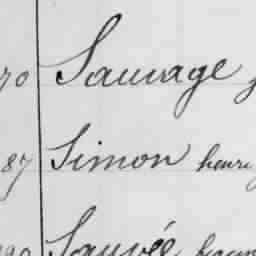 70 Sauvage
87 Simon henri
Sauvée